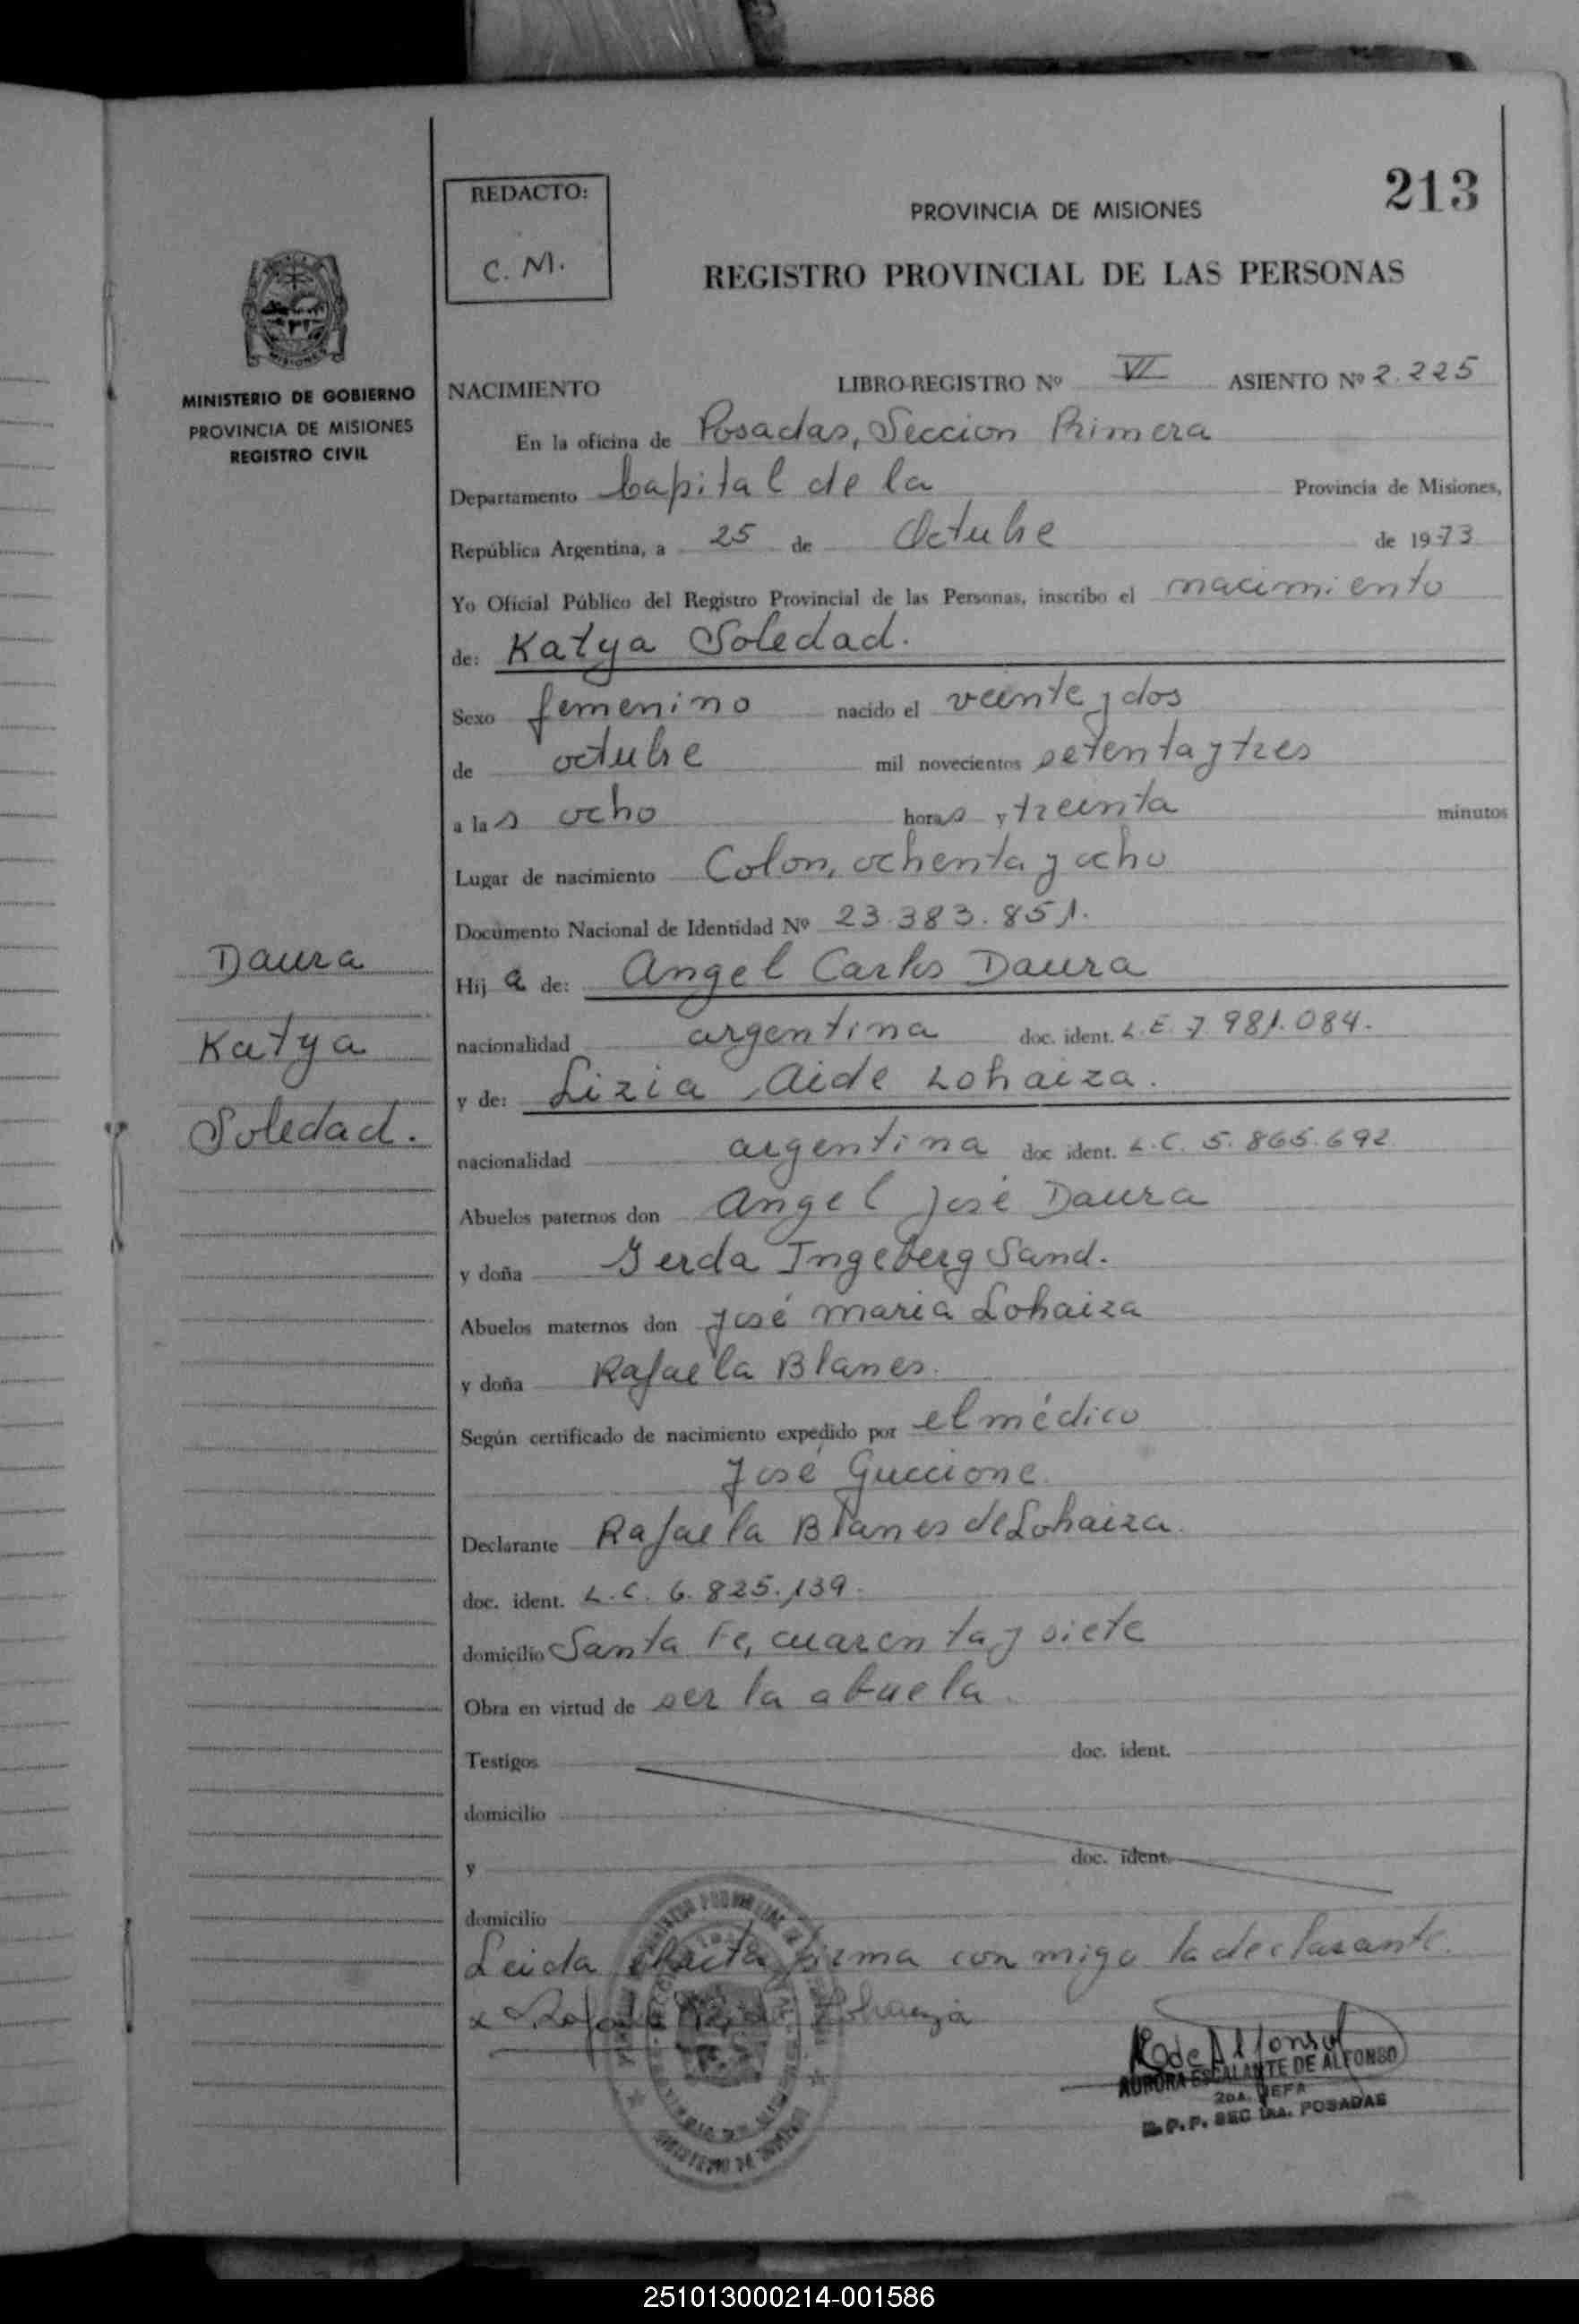 213
REDACTO:
C. M.
PROVINCIA DE MISIONES
REGISTRO PROVINCIAL DE LAS PERSONAS
MISIONES
MINISTERIO DE GOBIERNO
PROVINCIA DE MISIONES
REGISTRO CIVIL
NACIMIENTO LIBRO-REGISTRO Nº VI ASIENTO Nº 2.225
En la oficina de Posadas, Seccion Primera
Departamento Capital de la Provincia de Misiones,
República Argentina, a 25 de Octubre de 1973
Yo Oficial Público del Registro Provincial de las Personas, inscribo el nacimiento
de: Katya Soledad.
Sexo femenino nacido el veinte y dos
de octubre mil novecientos setenta y tres
a las ocho horas y treinta minutos
Lugar de nacimiento Colon, ochenta y ocho
Documento Nacional de Identidad Nº 23.383.851.
Daura
Katya
Soledad.
Hija de: Angel Carlos Daura
nacionalidad argentina doc. ident. L.E. 7.981.084.
y de: Lizia Aide Lohaiza.
nacionalidad argentina doc ident. L.C. 5.865.692
Abuelos paternos don Angel José Daura
y doña Gerda Ingeberg Sand.
Abuelos maternos don José Maria Lohaiza
y doña Rafaela Blanes.
Según certificado de nacimiento expedido por el médico
José Guccione.
Declarante Rafaela Blanes de Lohaiza.
doc. ident. L.C. 6.825.139.
domicilio Santa Fe, cuarenta y siete
Obra en virtud de ser la abuela.
Testigos doc. ident.
domicilio
y doc. ident.
domicilio
Leida el acta firma con migo la declarante.
x Rafaela de Lohaiza
R de Alfonso
AURORA ESCALANTE DE ALFONSO
2DA. JEFA
R.P.P. SEC 1RA. POSADAS
251013000214-001586